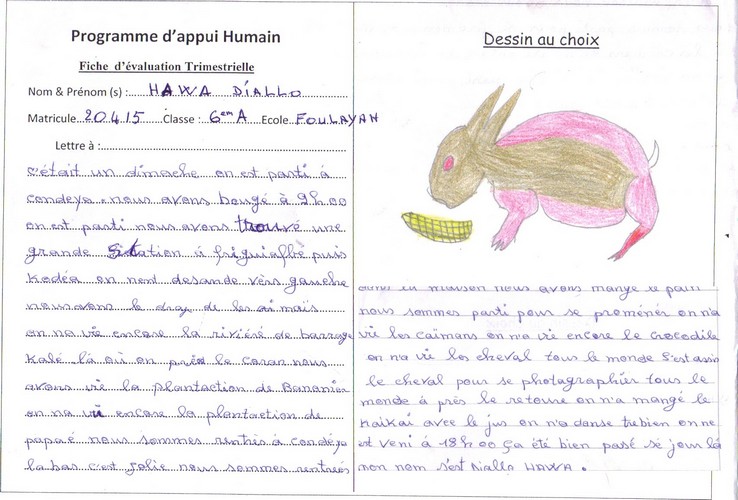 Programme d'appui Humain
Fiche d'évaluation Trimestrielle
Nom & Prénom (s) : HAWA DIALLO
Matricule 20415 Classe : 6em A Ecole FOULAYAH
Lettre à :
c'était un dimache on est parti à
condeya nous avons bougé à 9h00
on est parti nous avons trouvé une
grande sitation à friguiaffré puis
kodéa on nent desande vers gauche
nous avons le dray de les ai maïs
on na vie encore la riviéré de barrage
kalé là où on le coran nous
avons vie la plantaction de Bananier
on na vu encore la plantaction de
papaé nous sommes rentrés à condéya
la bas c'est jolie nous sommes rentrées
Dessin au choix
dans la maison nous avons mangé le pain
nous sommes parti pour se proméner on na
vie les caïmans on na vie encore le crocodile
on na vie les cheval tous le monde s'est assi
le cheval pour se photographier tous le
monde à près le retoure on n'a mangé le
kaikai avec le jus on n'a danse trebien on ne
est veni à 18h00 ça été bien pasé se jour là
mon nom s'est Diallo HAWA.